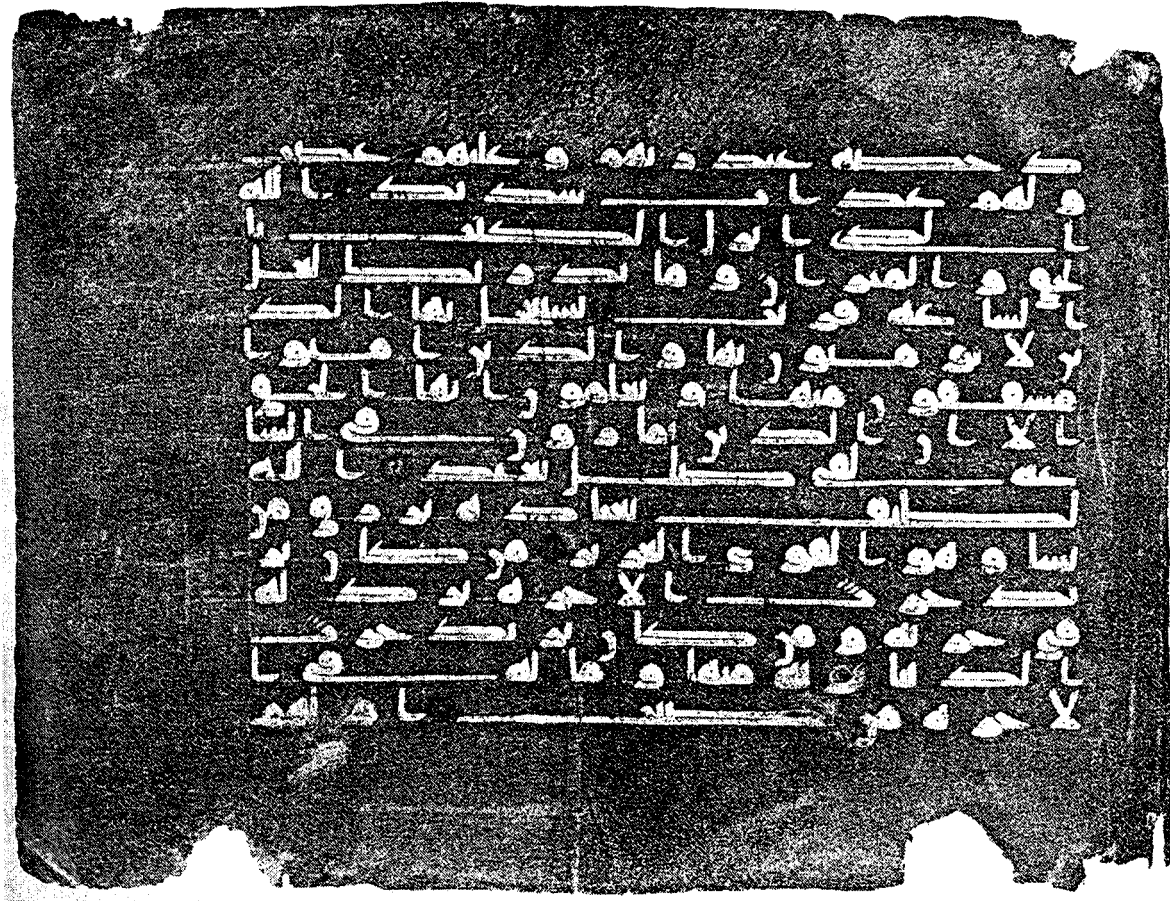 حضه عند ربهم و عليهم غضب
و لهم عذاب شديد الله
الذي انزل الكتب با
لحق و الميزان و ما يدريك لعل
الساعه قريب يستعجل بها الذ
ين لا يؤمنون بها و الذين امنوا
مشفقون منها و يعلمون انها الحق
الا ان الذين يمارون في السا
عه لفي ضلل بعيد الله
لطيف بعباده يرزق من
يشا و هو القوي العزيز من كان
يريد حرث الاخره نزد له
في حرثه و من كان يريد حرث
الدنيا نؤته منها و ما له في ا
لاخره من نصيب ام لهم